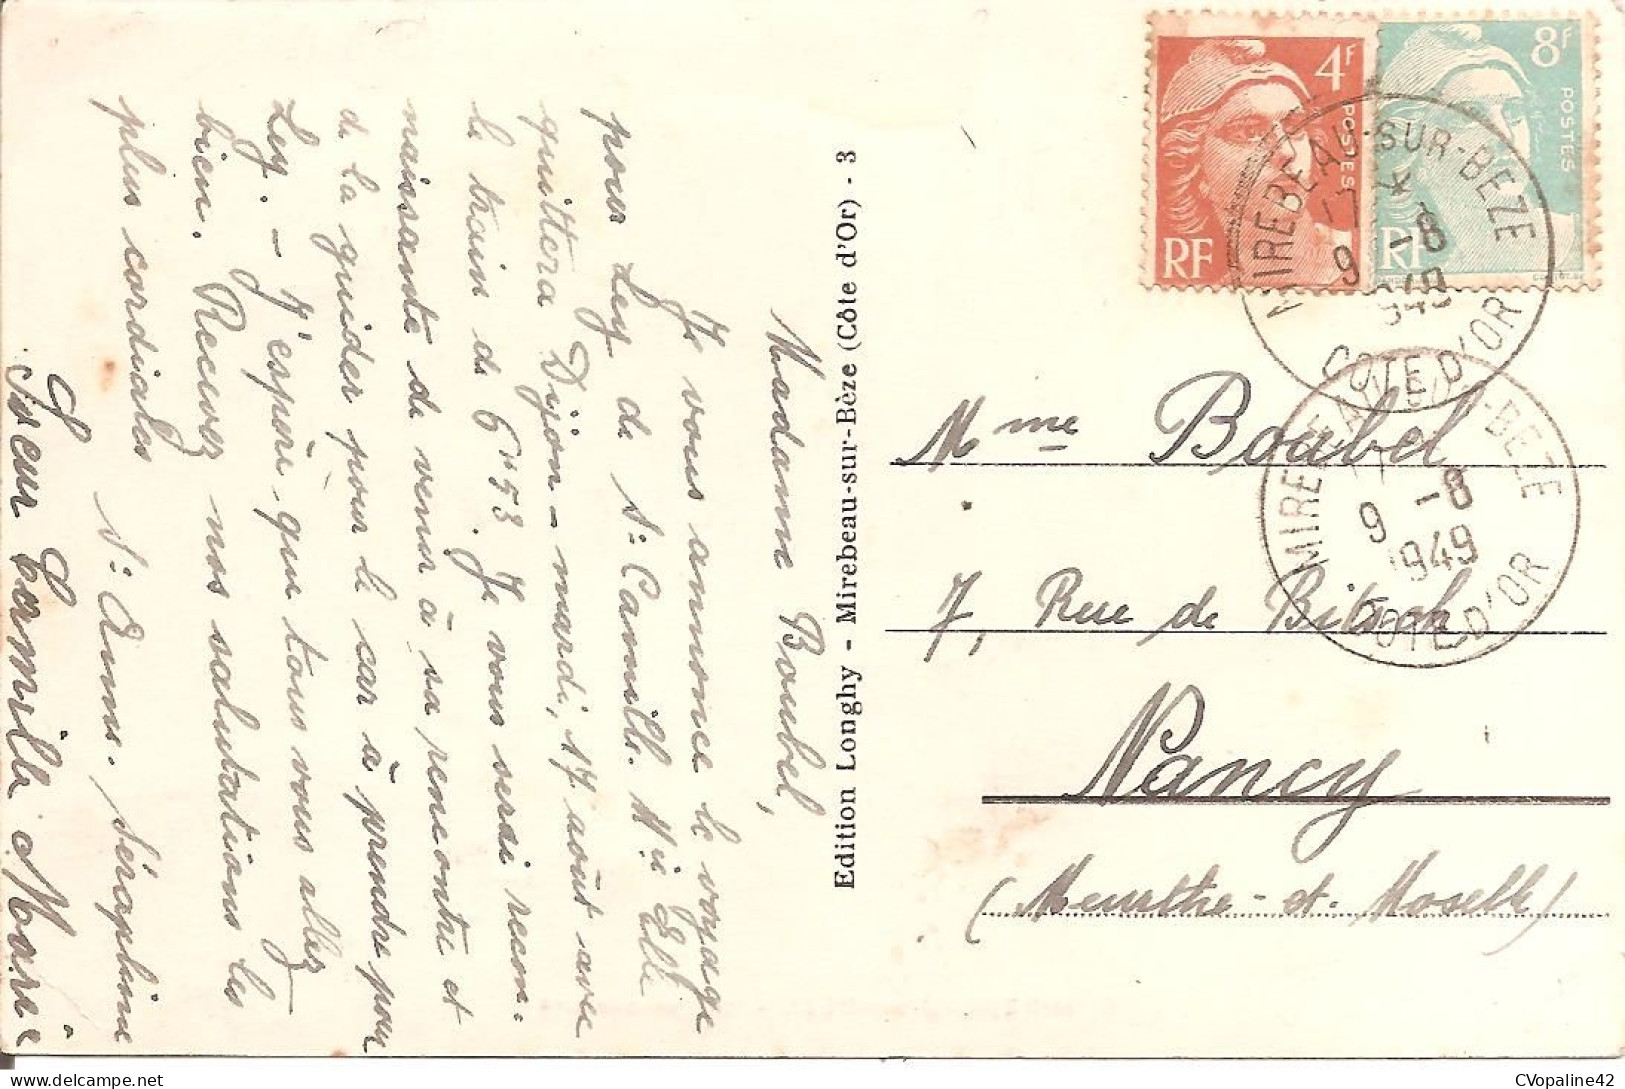 Madame Boubel,
Je vous annonce le voyage
pour Ley de Sr Camille. Elle
quittera Dijon - mardi, 17 août avec
le train de 6h53. Je vous serai recon-
naissante de venir à sa rencontre et
de la guider pour le car à prendre pour
Ley. - J'espère que tous vous allez
bien. Recevez nos salutations les
plus cordiales Sr Séraphine
Soeur Camille Marie
Edition Longhy - Mirebeau-sur-Bèze (Côte d'Or) - 3
4F
POSTES
RF
8F
POSTES
RF
MIREBEAU-SUR-BEZE
17 *
9 -8
1949
COTE D'OR
MIREBEAU-SUR-BEZE
17
9 -8
1949
COTE D'OR
Mme Boubel
7, Rue de Bitsch
Nancy
(Meurthe-et-Moselle)
CVopaline42